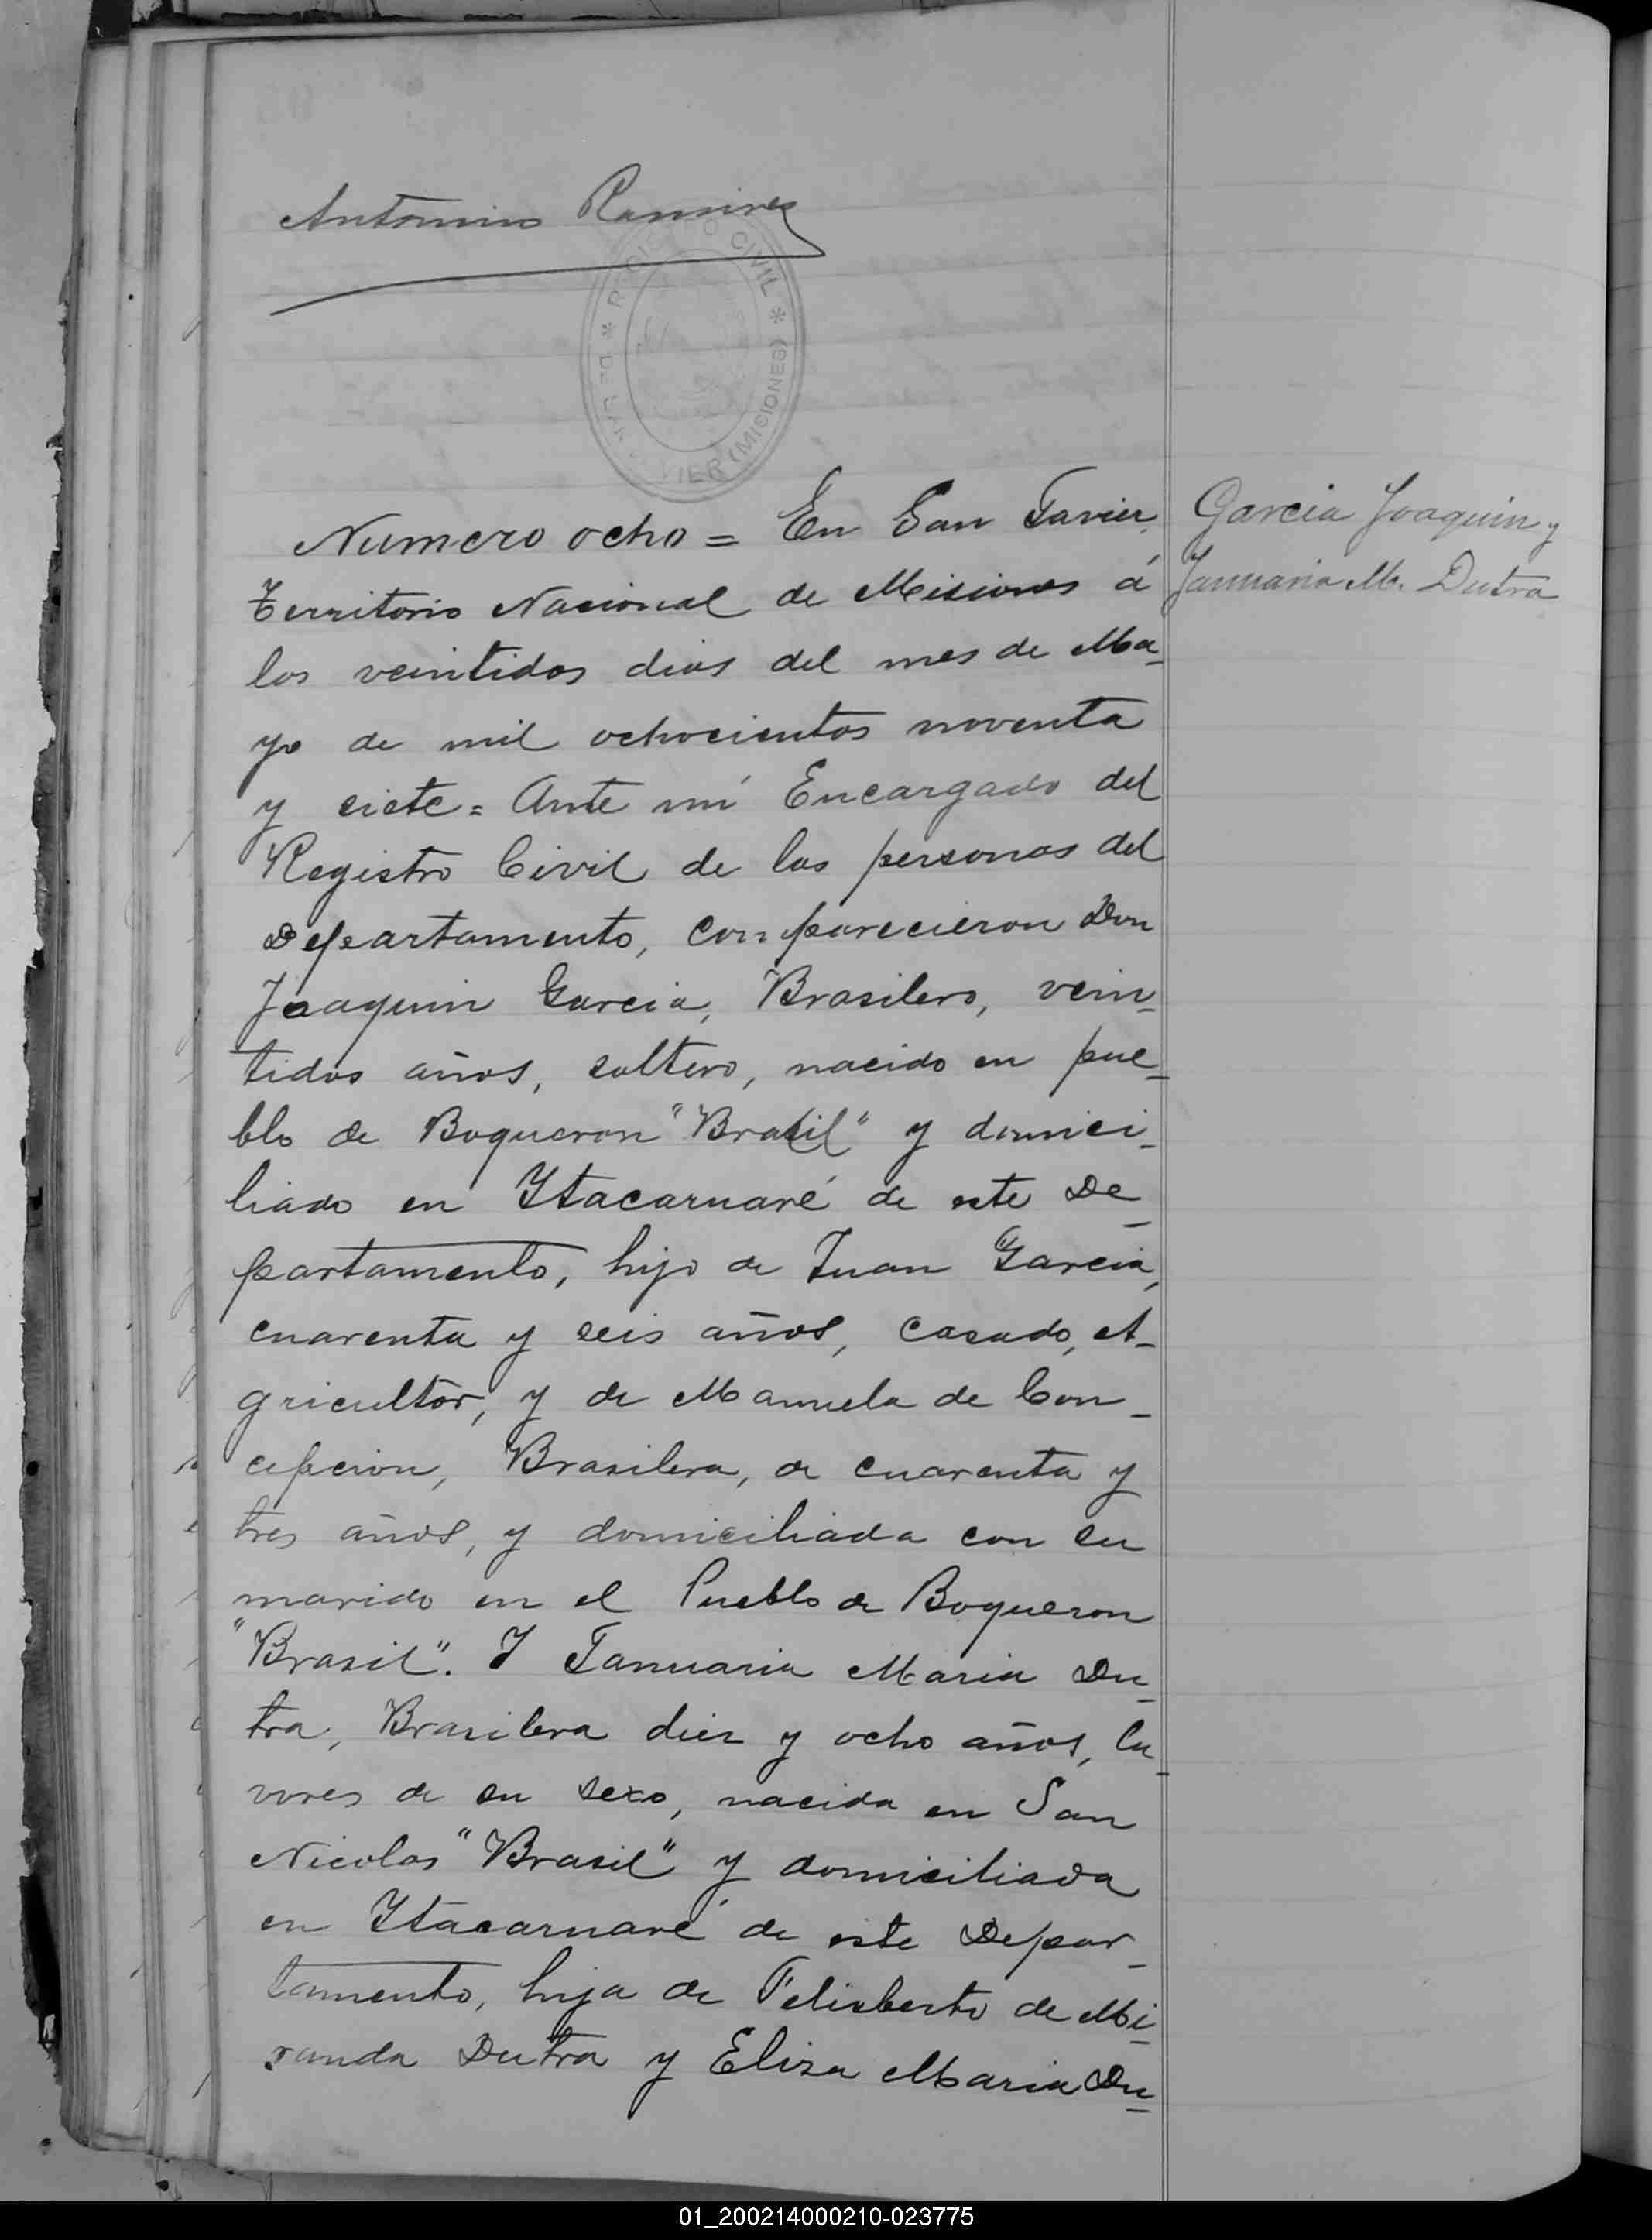 Antonino Ramirez
REGISTRO CIVIL * (MISIONES)
Numero ocho = En San Javier,
Territorio Nacional de Misiones á
los veintidos dias del mes de Ma-
yo de mil ochocientos noventa
y siete = Ante mí Encargado del
Registro Civil de las personas del
Departamento, comparecieron Don
Joaquin Garcia, Brasilero, vein-
tidos años, soltero, nacido en pue-
blo de Boqueron "Brasil" y domici-
liado en Itacaruaré de este De-
partamento, hijo de Juan Garcia,
cuarenta y seis años, casado, A-
gricultor, y de Manuela de Con-
cepcion, Brasilera, de cuarenta y
tres años, y domiciliada con su
marido en el Pueblo de Boqueron
"Brasil". Y Januaria Maria Du-
tra, Brasilera diez y ocho años, la-
vores de su sexo, nacida en San
Nicolas "Brasil" y domiciliada
en Itacaruaré de este Depar-
tamento, hija de Felisberto de Mi-
randa Dutra y Eliza Maria Du-
Garcia Joaquin y
Januaria M. Dutra
01_200214000210-023775